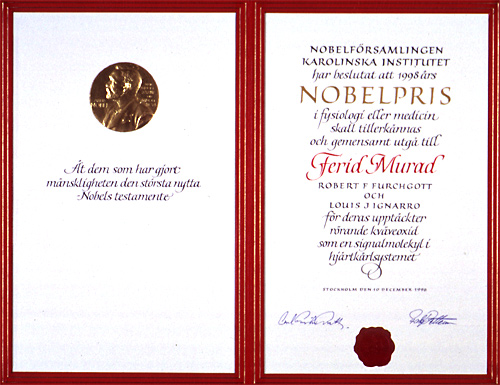 Åt dem som har gjort
mänskligheten den största nytta
Nobels testamente
NOBELFÖRSAMLINGEN
KAROLINSKA INSTITUTET
har beslutat att 1998 års
NOBELPRIS
i fysiologi eller medicin
skall tillerkännas
och gemensamt utgå till
Ferid Murad
ROBERT F FURCHGOTT
OCH
LOUIS J IGNARRO
för deras upptäckter
rörande kväveoxid
som en signalmolekyl i
hjärtkärlsystemet
STOCKHOLM DEN 10 DECEMBER 1998